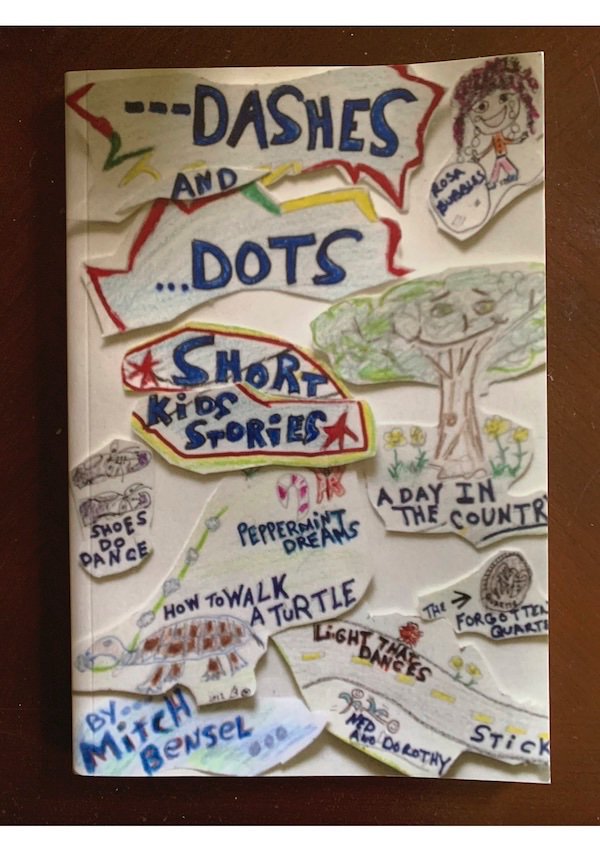 ---DASHES
AND
...DOTS
ROSA
BUBBLES
SHORT
KIDS
STORIES
A DAY IN
THE COUNTR
SHOES
DO
DANCE
PEPPERMINT
DREAMS
HOW TO WALK
A TURTLE
THE →
FORGOTTEN
QUARTE
LIGHT THAT
DANCES
NED
AND DOROTHY
STICK
BY...
MITCH
BENSEL